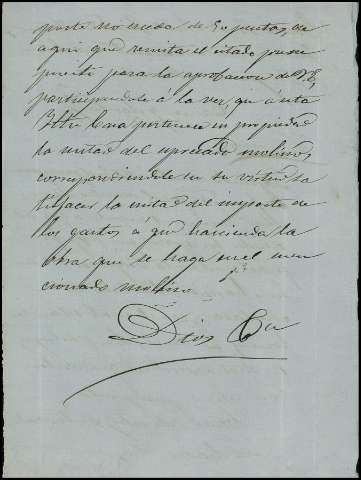 porte no esceda de 50 pesetas, de
aqui que remita el citado presu
puesto para la aprobacion de V.E,
participandole á la vez, que á esta
Iltre Casa pertenece en propiedad
la mitad del apreciado molino,
correspondiendole en su virtud sa
tisfacer la mitad del importe de
los gastos á que hacienda la
obra que se haga en el men
cionado molino.
Dios &a